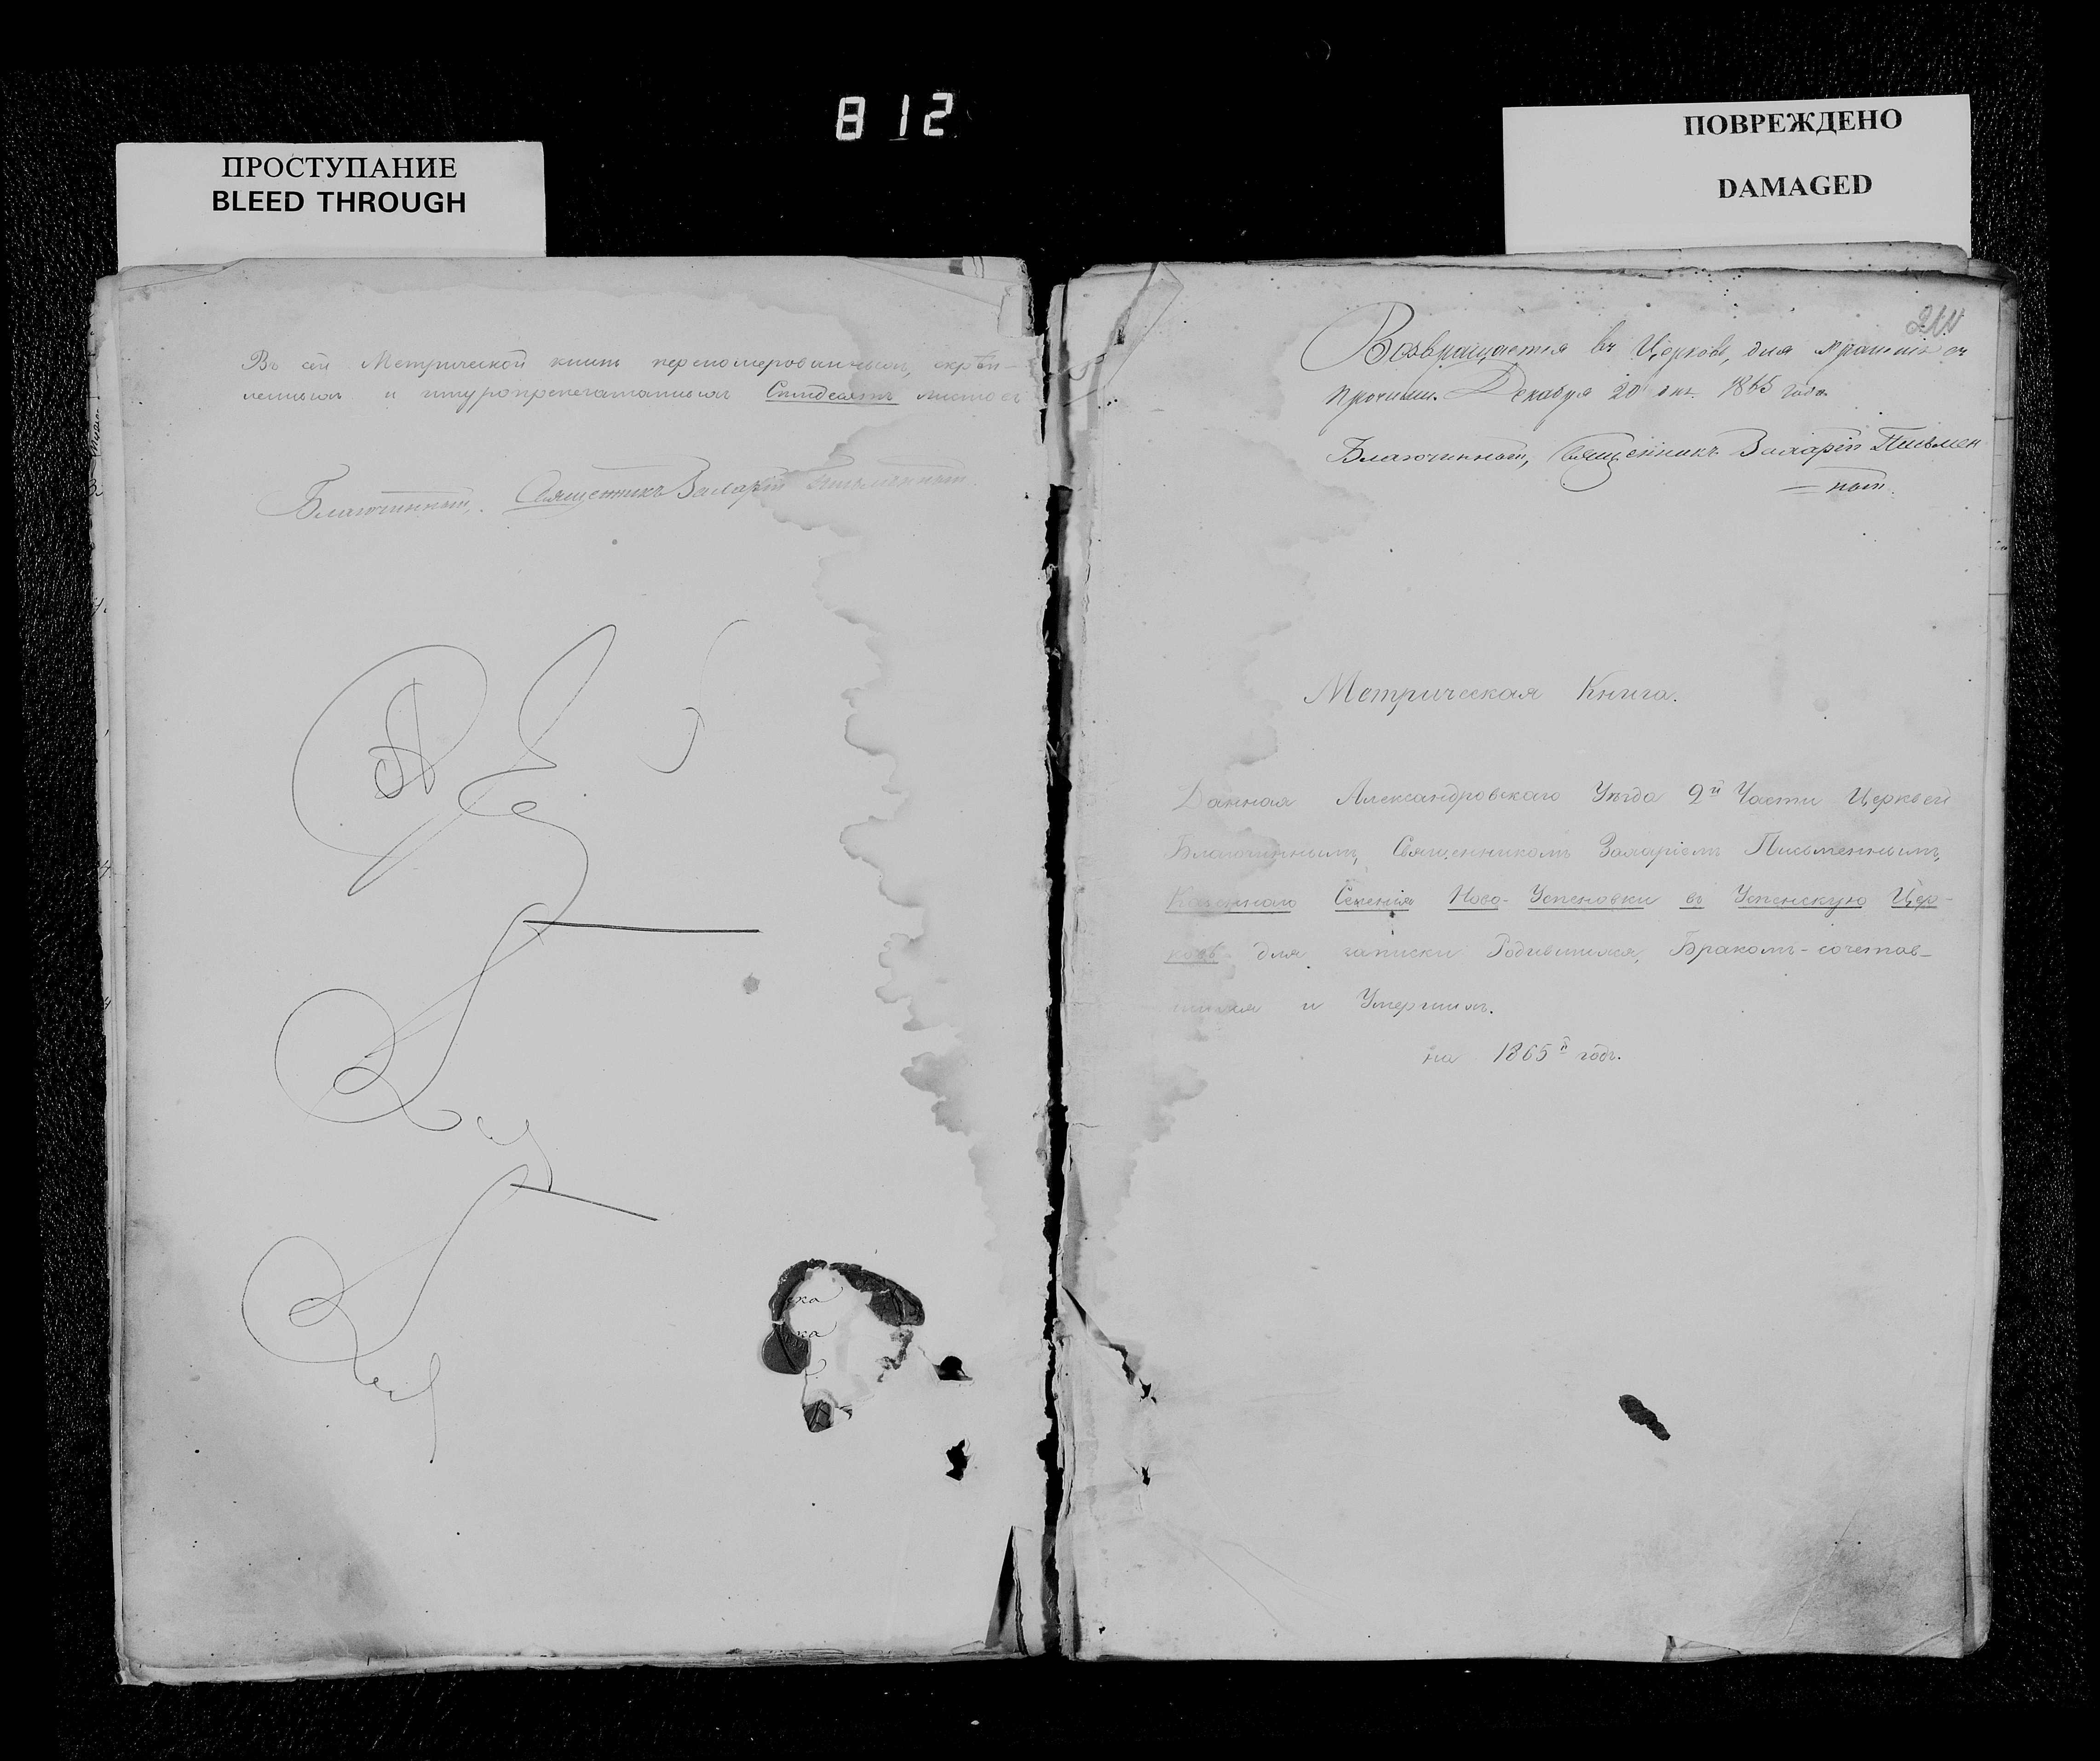 812
ПРОСТУПАНИЕ
BLEED THROUGH
ПОВРЕЖДЕНО
DAMAGED
Въ сей Метрической книгѣ переномерованныхъ, скрѣп-
ленныхъ и шнуропрепечатанныхъ Семдесятъ листовъ
Благочинный, Священникъ Захарій Письменный.
Возвращается въ Церковь, для храненія съ
прочими. Декабря 20 дня 1865 года.
Благочинный, Священникъ Захарій Письмен
ный.
Метрическая Книга.
Данная Александровскаго Уѣзда 2й Части Церквей
Благочиннымъ, Священникомъ Захаріемъ Письменнымъ,
Казеннаго Селенія Ново-Успеновки въ Успенскую Цер-
ковь для записки Родившихся, Бракомъ-сочетав-
шихся и Умершихъ.
на 1865й годъ.